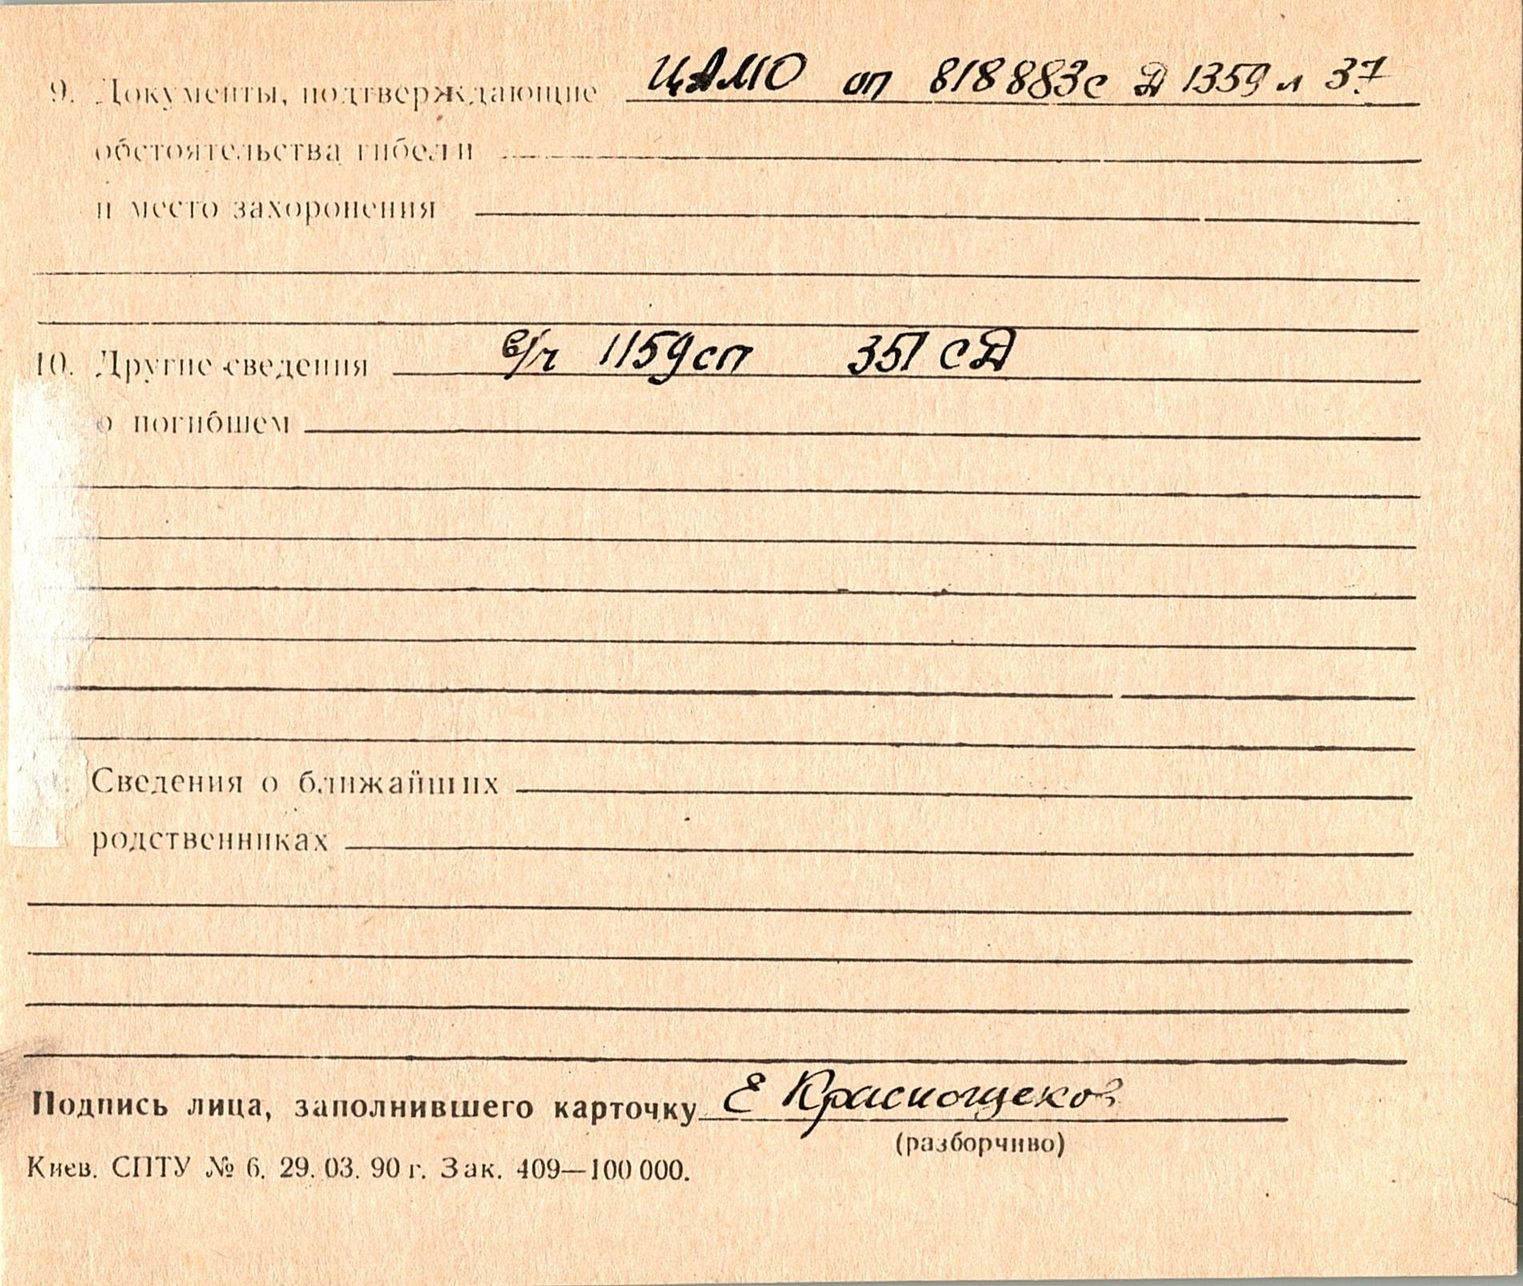 9. Документы, подтверждающие ЦАМО оп 818883с Д 1359 л 37
обстоятельства гибели
и место захоронения
10. Другие сведения в/ч 1159сп 351 сД
о погибшем
Сведения о ближайших
родственниках
Подпись лица, заполнившего карточку Е Краснощеков
(разборчиво)
Киев. СПТУ № 6. 29. 03. 90 г. Зак. 409—100 000.